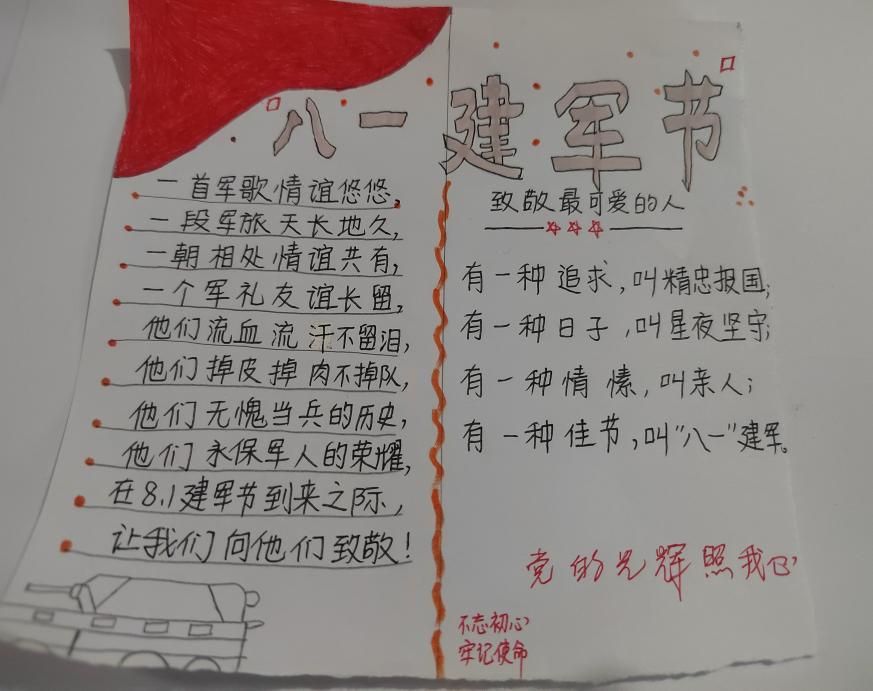 八一建军节
一首军歌情谊悠悠,
一段军旅天长地久,
一朝相处情谊共有,
一个军礼友谊长留,
他们流血流汗不留泪,
他们掉皮掉肉不掉队,
他们无愧当兵的历史,
他们永保军人的荣耀,
在8.1建军节到来之际,
让我们向他们致敬!
致敬最可爱的人
有一种追求,叫精忠报国;
有一种日子,叫星夜坚守;
有一种情愫,叫亲人;
有一种佳节,叫"八一"建军。
党的光辉照我心
不忘初心
牢记使命